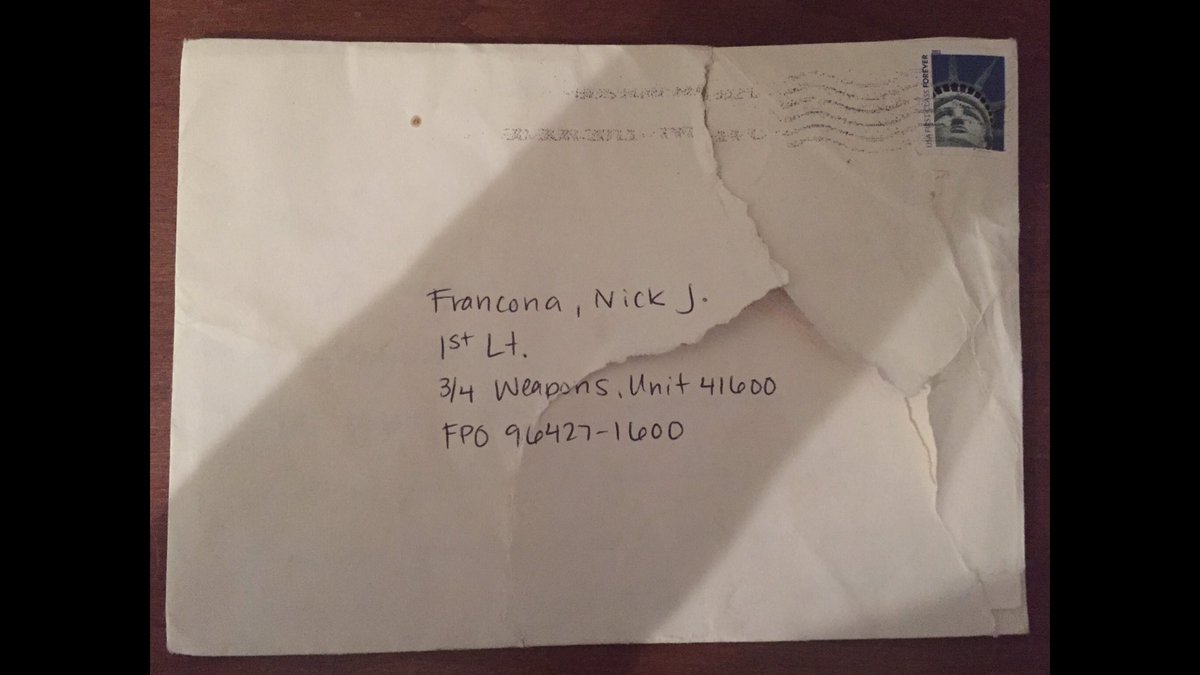 USA FIRST-CLASS FOREVER
Francona, Nick J.
1st Lt.
3/4 Weapons, Unit 41600
FPO 96427-1600